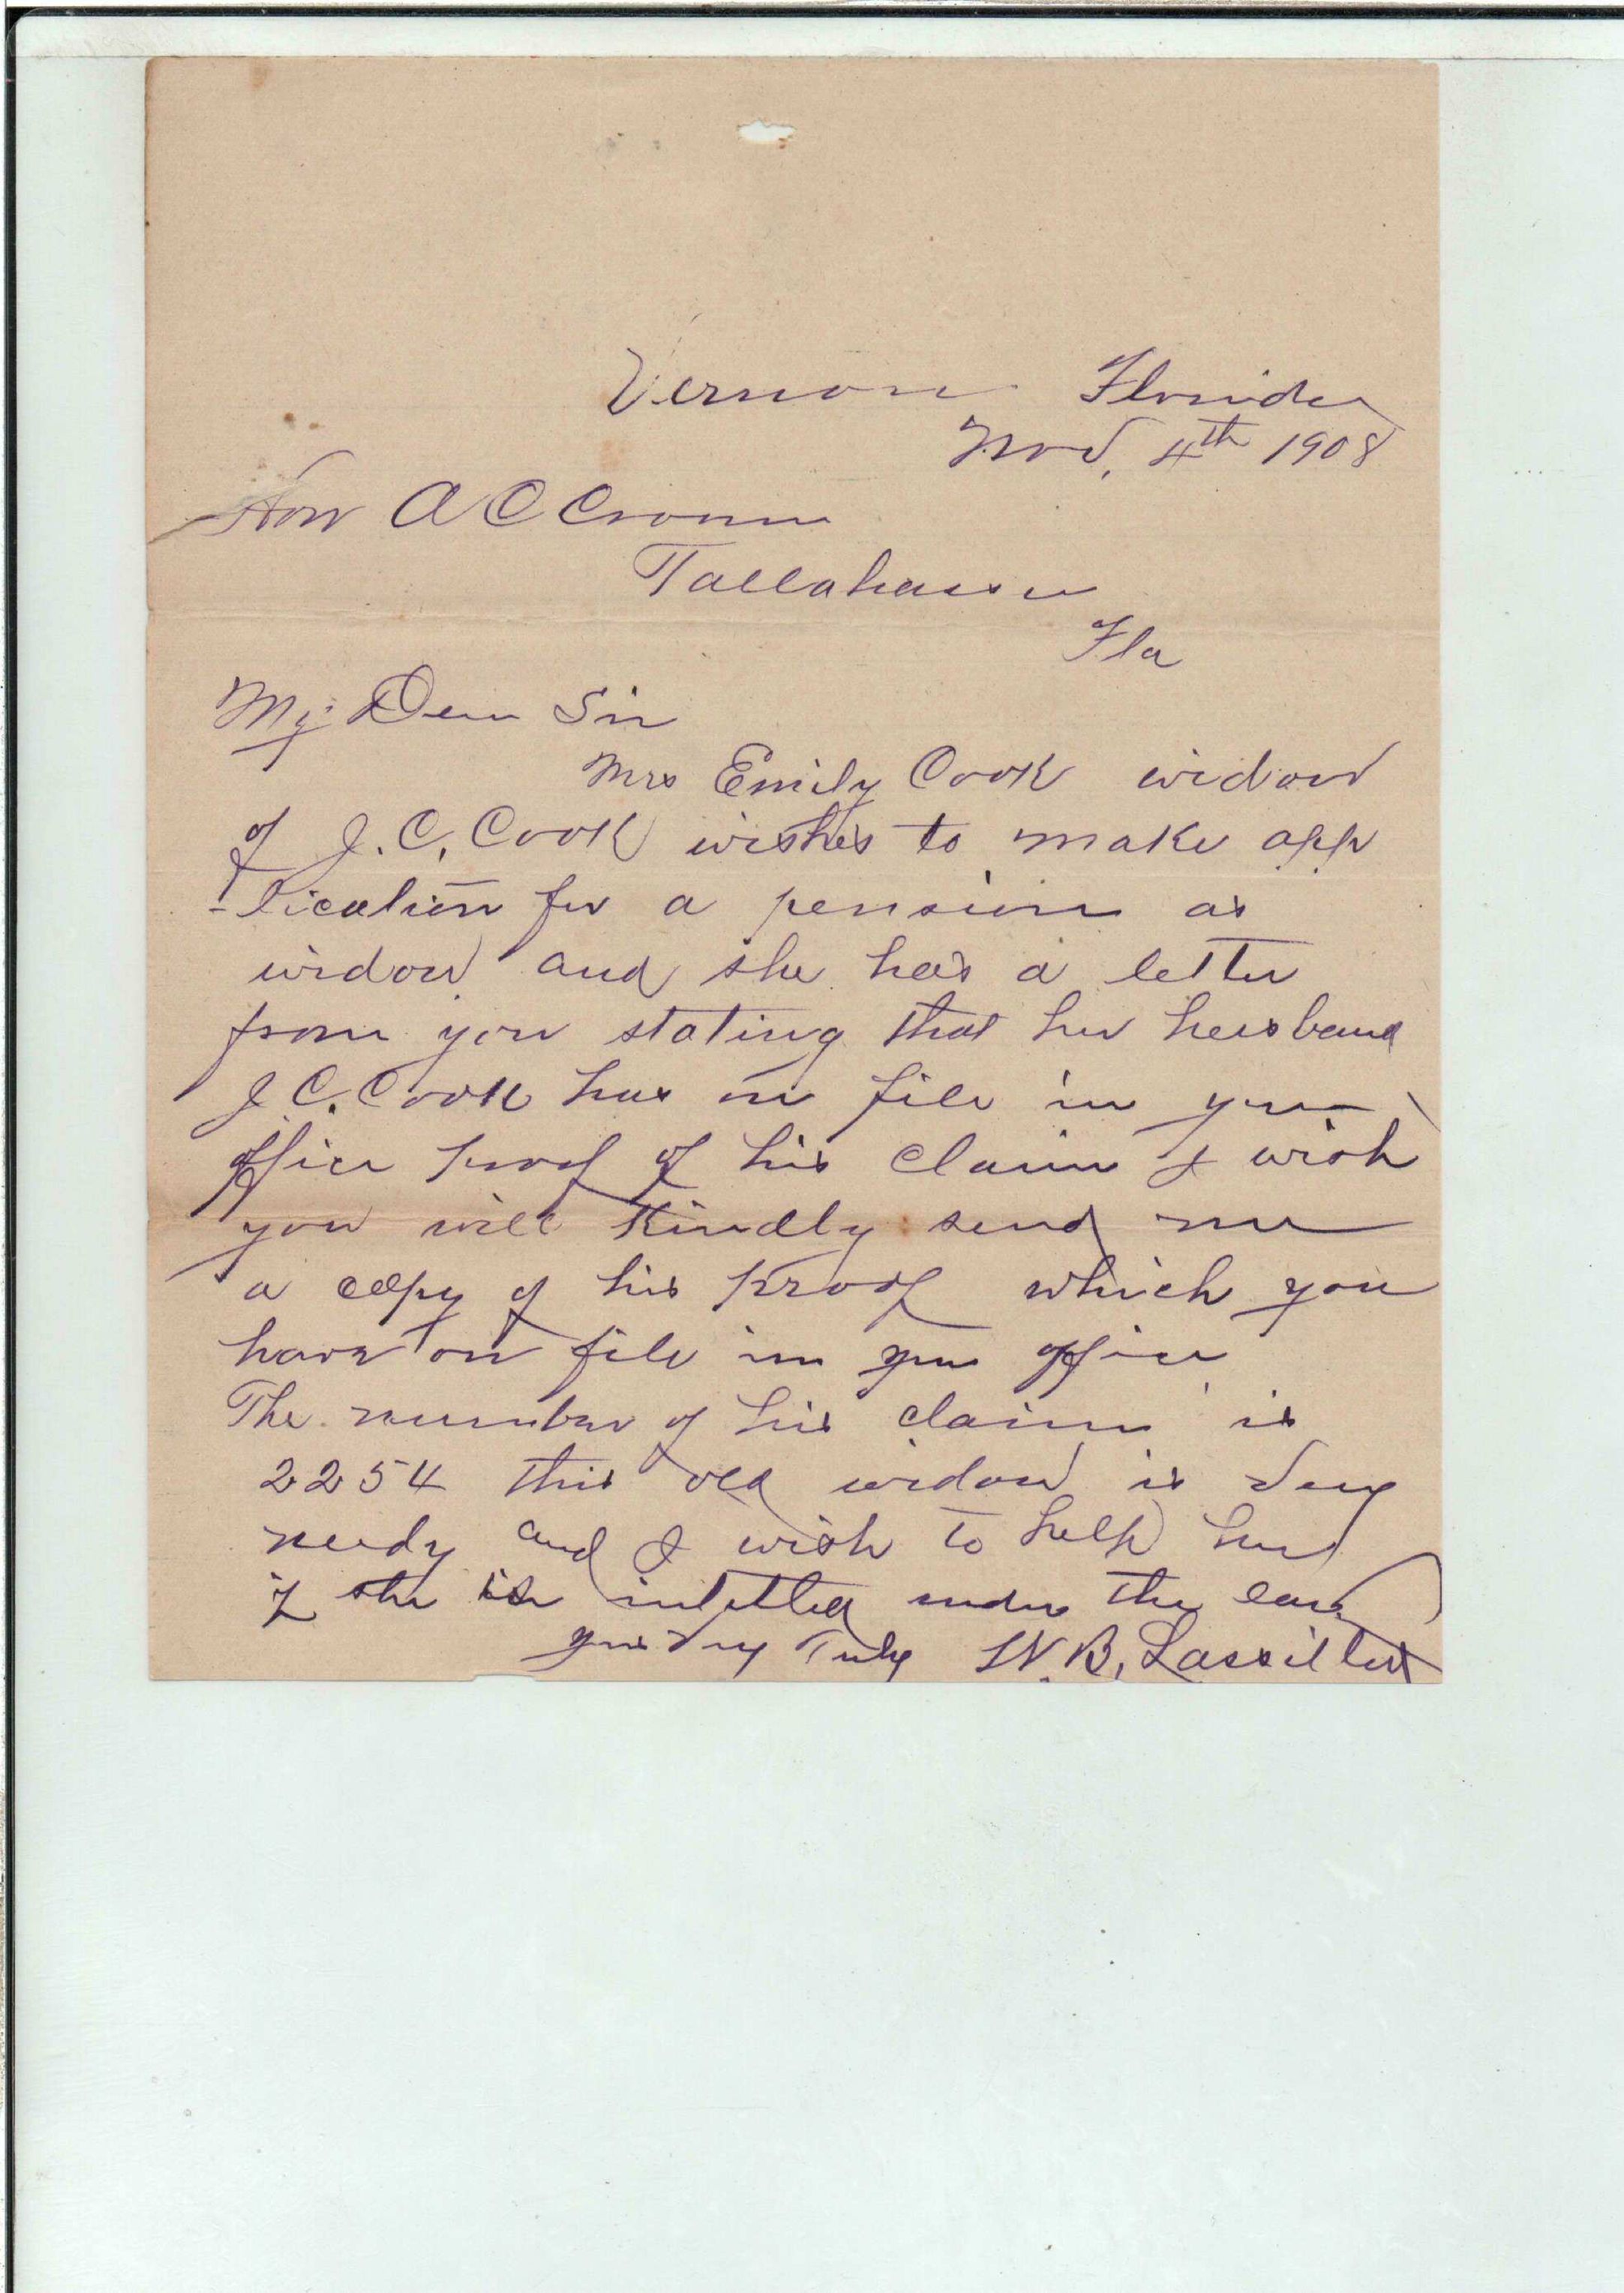 Vernon Florida
Nov, 4th 1908
Hon A C Croom
Tallahassee
Fla
My Dear Sir
Mrs Emily Cook widow
of J. C. Cook wishes to make app
-lication for a pension as
widow and she has a letter
from you stating that her husband
J. C. Cook has on file in your
office proof of his claim I wish
you will Kindly send me
a copy of his proof which you
have on file in your office
The number of his claim is
2254 this old widow is very
needy and I wish to help her
if she is intitled under the law
yours very Truly W. B. Lassitter